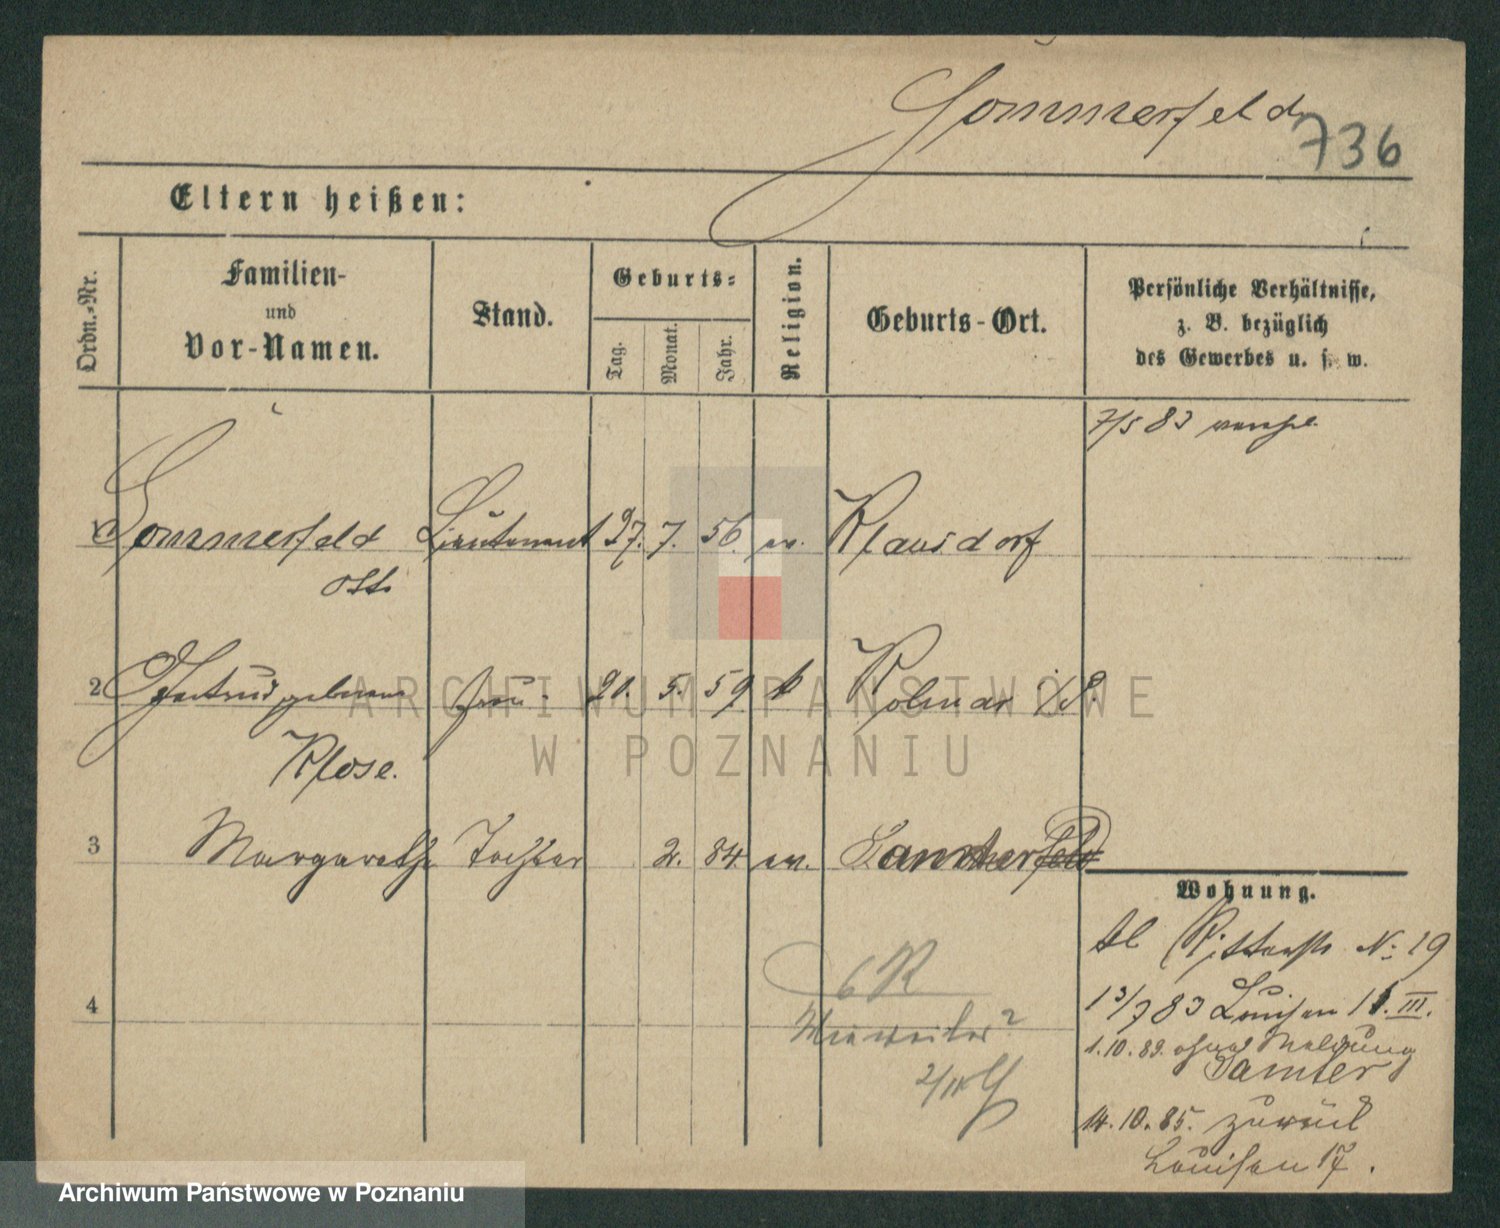 Sommerfeld
736
Eltern heißen:
Ordn.-Nr.
Familien-
und
Vor-Namen.
Stand.
Geburts-
Tag.
Monat.
Jahr.
Religion.
Geburts-Ort.
Persönliche Verhältnisse,
z. B. bezüglich
des Gewerbes u. s. w.
7/5 83
1 Sommerfeld Lieutenant 27. 7. 56. ev. Klausdorf
Otto
2 Gertrud geborene Frau 21. 5. 59 k Kolmar i/P.
Klose.
3 Margarethe Tochter 2. 84 ev. Samter
Wohnung.
Kl Ritterstr No 19
13/7 83 Louisen 15 III.
1.10.83. ohne Meldung
Samter
14.10.85. zurück
Louisen 17.
4
6 R
2/11
ARCHIWUM PAŃSTWOWE
W POZNANIU
Archiwum Państwowe w Poznaniu